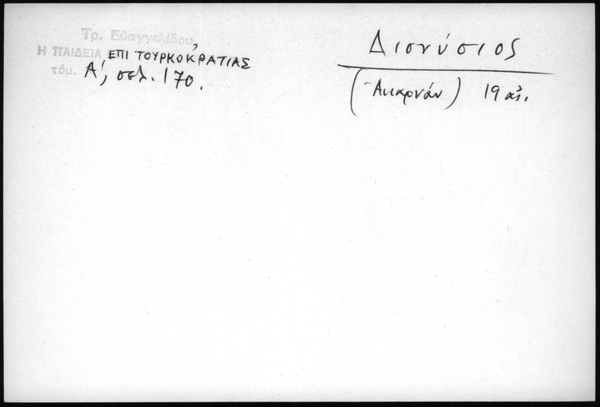 Τρ. Εὐαγγελίδου,
Η ΠΑΙΔΕΙΑ ΕΠΙ ΤΟΥΡΚΟΚΡΑΤΙΑΣ
τόμ. Α', σελ. 170.
Διονύσιος
(Ἀκαρνάν) 19 αἰ.